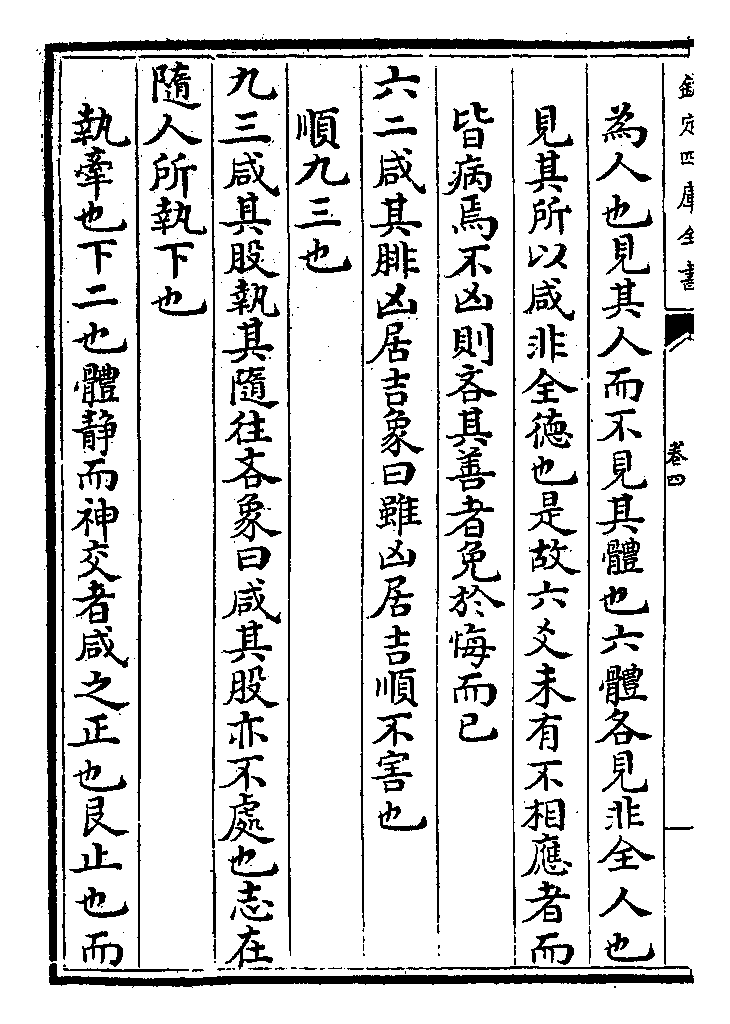 欽定四庫全書
卷四
為人也見其人而不見其體也六體各見非全人也
見其所以咸非全徳也是故六爻未有不相應者而
皆病焉不凶則吝其善者免於悔而已
六二咸其腓凶居吉象曰雖凶居吉順不害也
順九三也
九三咸其股執其隨往吝象曰咸其股亦不處也志在
隨人所執下也
執牽也下二也體静而神交者咸之正也艮止也而